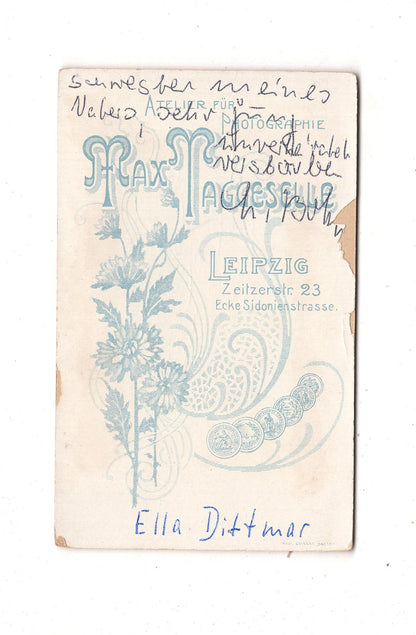 Schwester meines
Vaters, sehr jung
unverheiratet
verstorben
ATELIER FÜR
PHOTOGRAPHIE
MAX TAGGESELLE
LEIPZIG
Zeitzerstr. 23
Ecke Sidonienstrasse.
Ella Dittmar